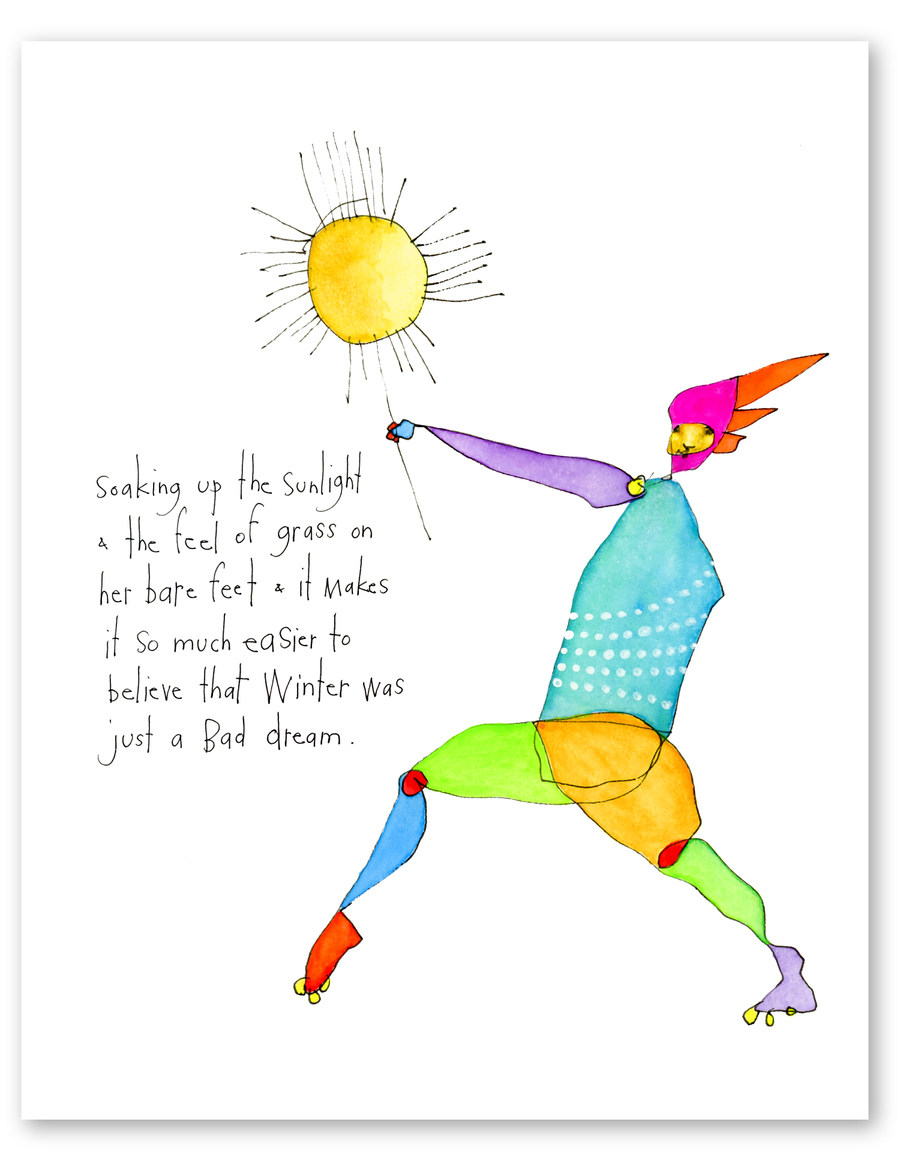 Soaking up the Sunlight
& the feel of grass on
her bare feet & it Makes
it So much easier to
believe that Winter was
just a Bad dream.